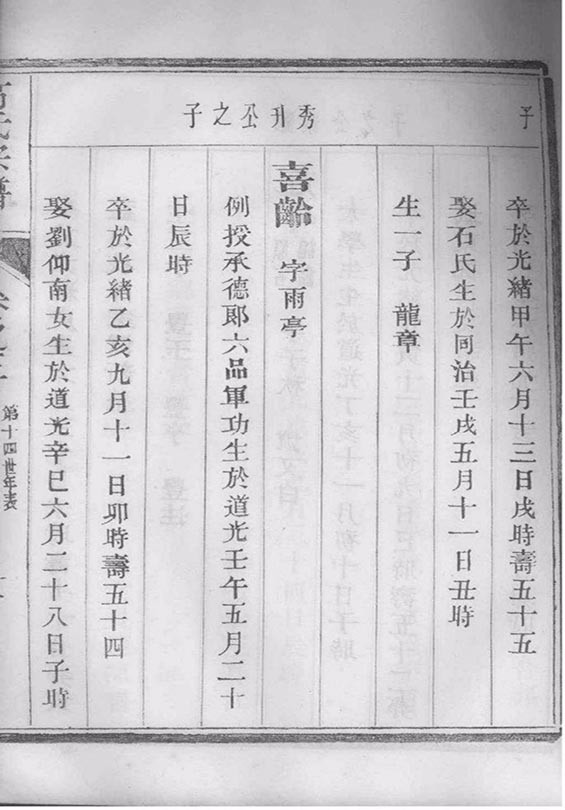 子
卒於光緒甲午六月十三日戌時壽五十五
娶石氏生於同治壬戌五月十一日丑時
生一子 龍章
秀升公之子
喜齡 字雨亭
例授承德郎六品軍功生於道光壬午五月二十
日辰時
卒於光緒乙亥九月十一日卯時壽五十四
娶劉仰南女生於道光辛巳六月二十八日子時
氏宗譜
第十四世年表